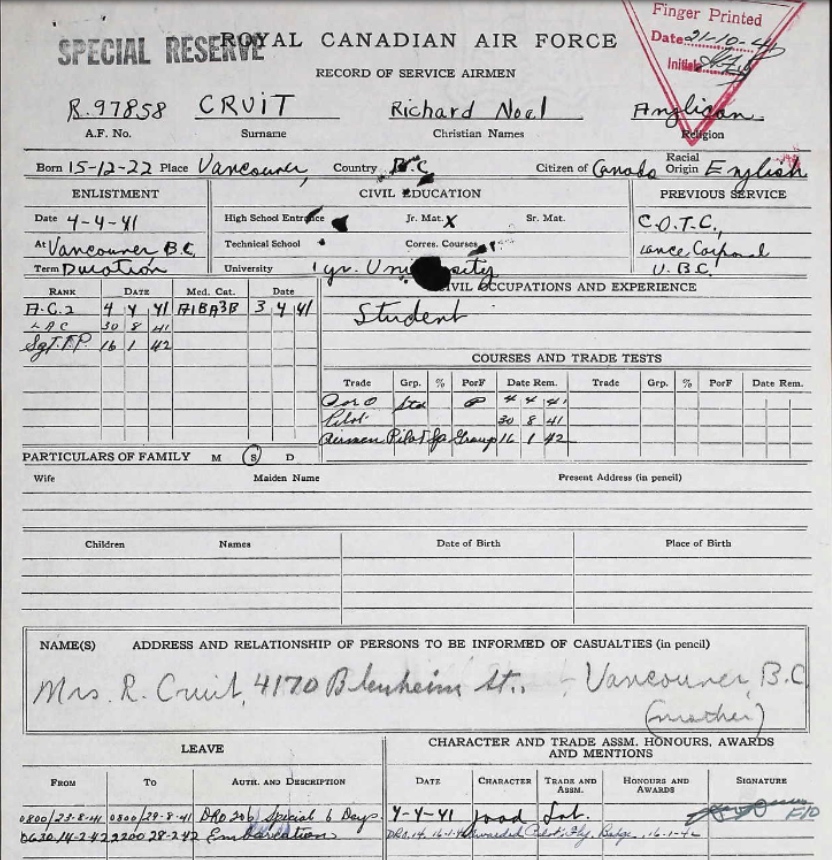 SPECIAL RESERVE
ROYAL CANADIAN AIR FORCE
Finger Printed
Date 21-10-41
Initials
RECORD OF SERVICE AIRMEN
R.97858 CRUIT Richard Noel Anglican
A.F. No. Surname Christian Names Religion
Born 15-12-22 Place Vancouver, Country B.C Citizen of Canada Racial Origin English
ENLISTMENT CIVIL EDUCATION PREVIOUS SERVICE
Date 4-4-41 High School Entrance Jr. Mat. X Sr. Mat. C.O.T.C.,
At Vancouver B.C. Technical School Corres. Courses Lance Corporal
Term Duration University 1 yr. University U.B.C.
RANK DATE MED. CAT. DATE CIVIL OCCUPATIONS AND EXPERIENCE
A.C.2 4 4 41 A1BA3B 3 4 41 Student
LAC 30 8 41
Sgt.T.P. 16 1 42
COURSES AND TRADE TESTS
Trade Grp. % PorF Date Rem. Trade Grp. % PorF Date Rem.
Std 4 4 41
Pilot 30 8 41
Airmen Pilot Group 16 1 42
PARTICULARS OF FAMILY M S D
Wife Maiden Name Present Address (in pencil)
Children Names Date of Birth Place of Birth
NAME(S) ADDRESS AND RELATIONSHIP OF PERSONS TO BE INFORMED OF CASUALTIES (in pencil)
Mrs. R. Cruit, 4170 Blenheim St., Vancouver, B.C.
(mother)
LEAVE CHARACTER AND TRADE ASSM. HONOURS, AWARDS AND MENTIONS
FROM TO AUTH. AND DESCRIPTION DATE CHARACTER TRADE AND ASSM. HONOURS AND AWARDS SIGNATURE
0800/23-8-41 0800/29-8-41 DRO 206 Special 6 Days 4-4-41 Good F/O
0630.14-2-42 2200 28-2-42 Embarkation DRO.14. 16-1-42 Awarded Pilot's Fly. Badge. 16-1-42